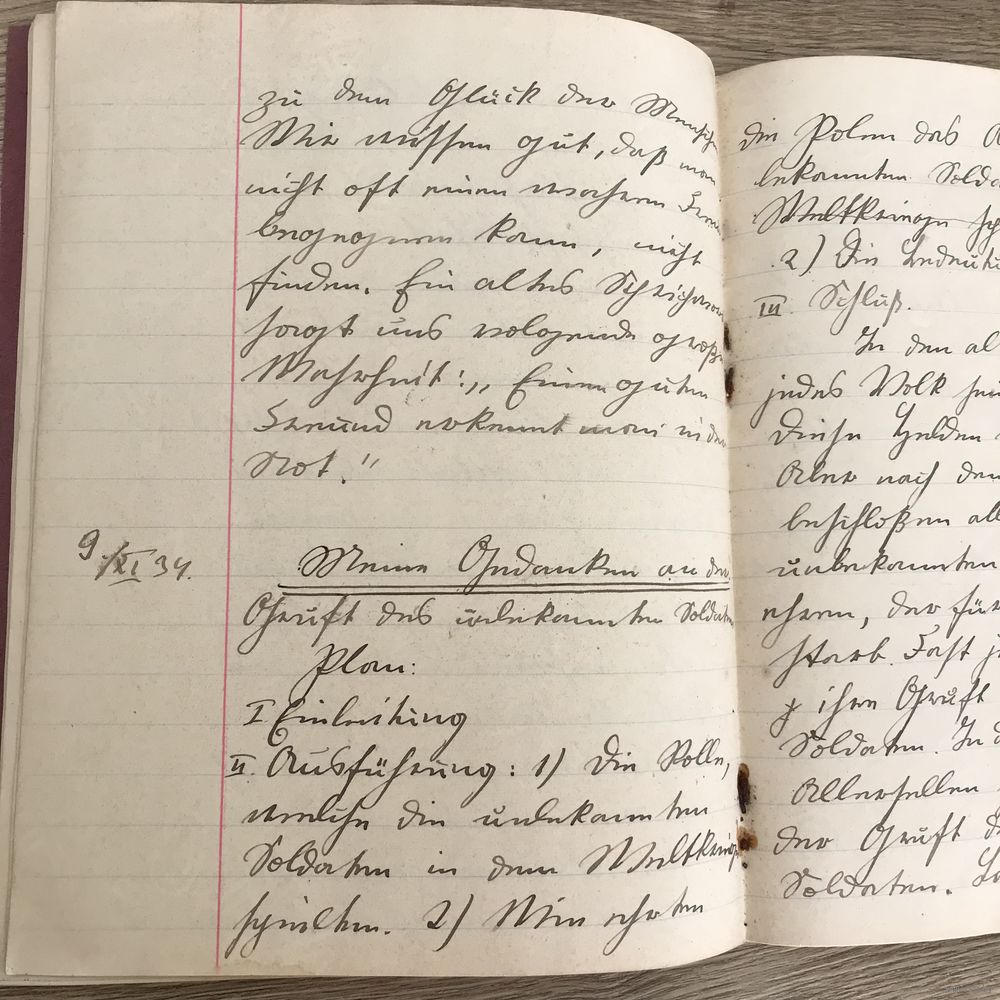 zu dem Glück der Mensch
Wir wissen gut, daß man
nicht oft einen wahren Freu
begegnen kann, nicht
finden. Ein altes Schrichwor
sagt uns volgende große
Wahrheit: „Einen guten
Freund erkennt man in der
Not."
9/XI 34.
Meine Gedanken an der
Gruft des unbekannten Soldaten
Plan:
I Einleitung
II. Ausführung: 1) Die Rolle,
welche die unbekannten
Soldaten in dem Weltkriege
spielten. 2) Wie ehrten
die Polen das
bekannten Solda
Weltkriege
2) Die Bedeutu
III. Schluß.
In den al
jedes Volk
Diese Helden
Aber nach dem
beschloßen all
unbekannten
ehren, der für
starb. Fast j
ihre Gruft
Soldaten. In d
Allerseelen
der Gruft d
Soldaten.